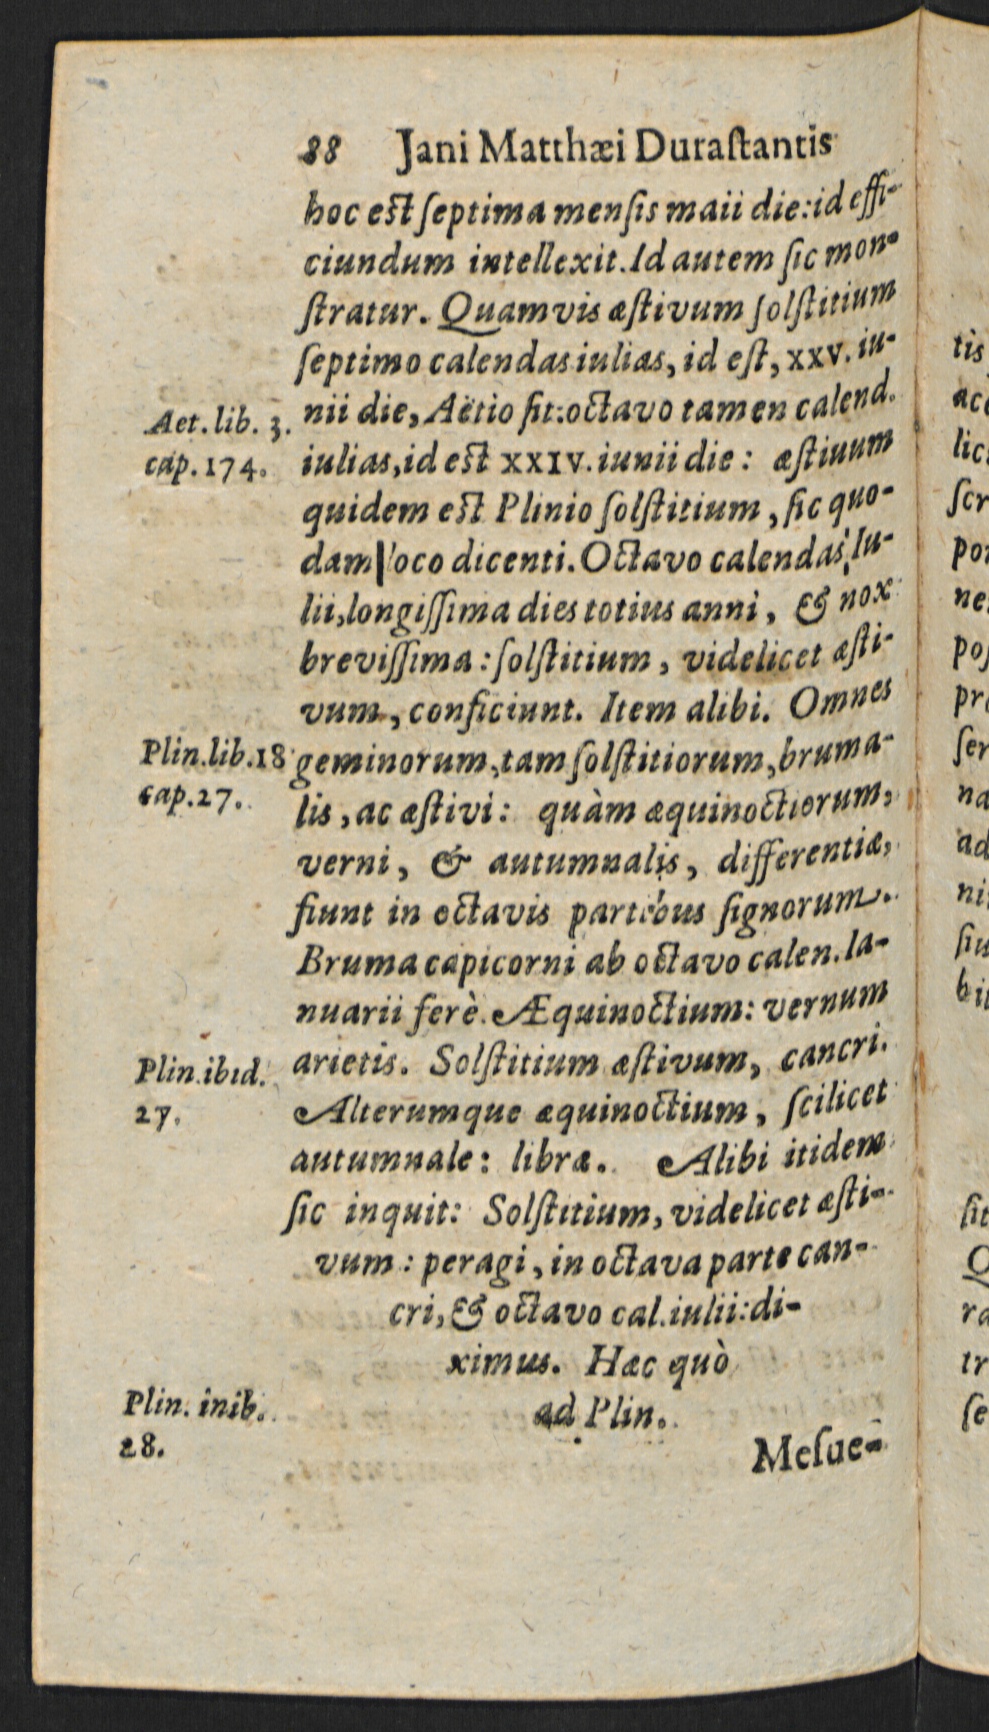 88 Jani Matthæi Durastantis
hoc est septima mensis maii die: id effi-
ciundum intellexit. Id autem sic mon-
stratur. Quamvis æstivum solstitium
septimo calendas iulias, id est, XXV. iu-
Aet. lib. 3.
cap. 174.
nii die, Aëtio fit: octavo tamen calend.
iulias, id est XXIV. iunii die: æstiuum
quidem est Plinio solstitium, sic quo-
dam loco dicenti. Octavo calendas Iu-
lii, longissima dies totius anni, & nox
brevissima: solstitium, videlicet æsti-
vum, conficiunt. Item alibi. Omnes
Plin. lib. 18
cap. 27.
geminorum, tam solstitiorum, bruma-
lis, ac æstivi: quàm æquinoctiorum,
verni, & autumnalis, differentiæ,
fiunt in octavis partibus signorum.
Bruma capicorni ab octavo calen. Ia-
nuarii ferè. Æquinoctium: vernum
Plin. ibid.
27.
arietis. Solstitium æstivum, cancri.
Alterumque æquinoctium, scilicet
autumnale: libræ. Alibi itidem
sic inquit: Solstitium, videlicet æsti-
vum: peragi, in octava parte can-
cri, & octavo cal. iulii: di-
ximus. Hæc quò
Plin. inib.
28.
ad Plin.
Mesue-
tis
lic
por
ad
ra
tr
se